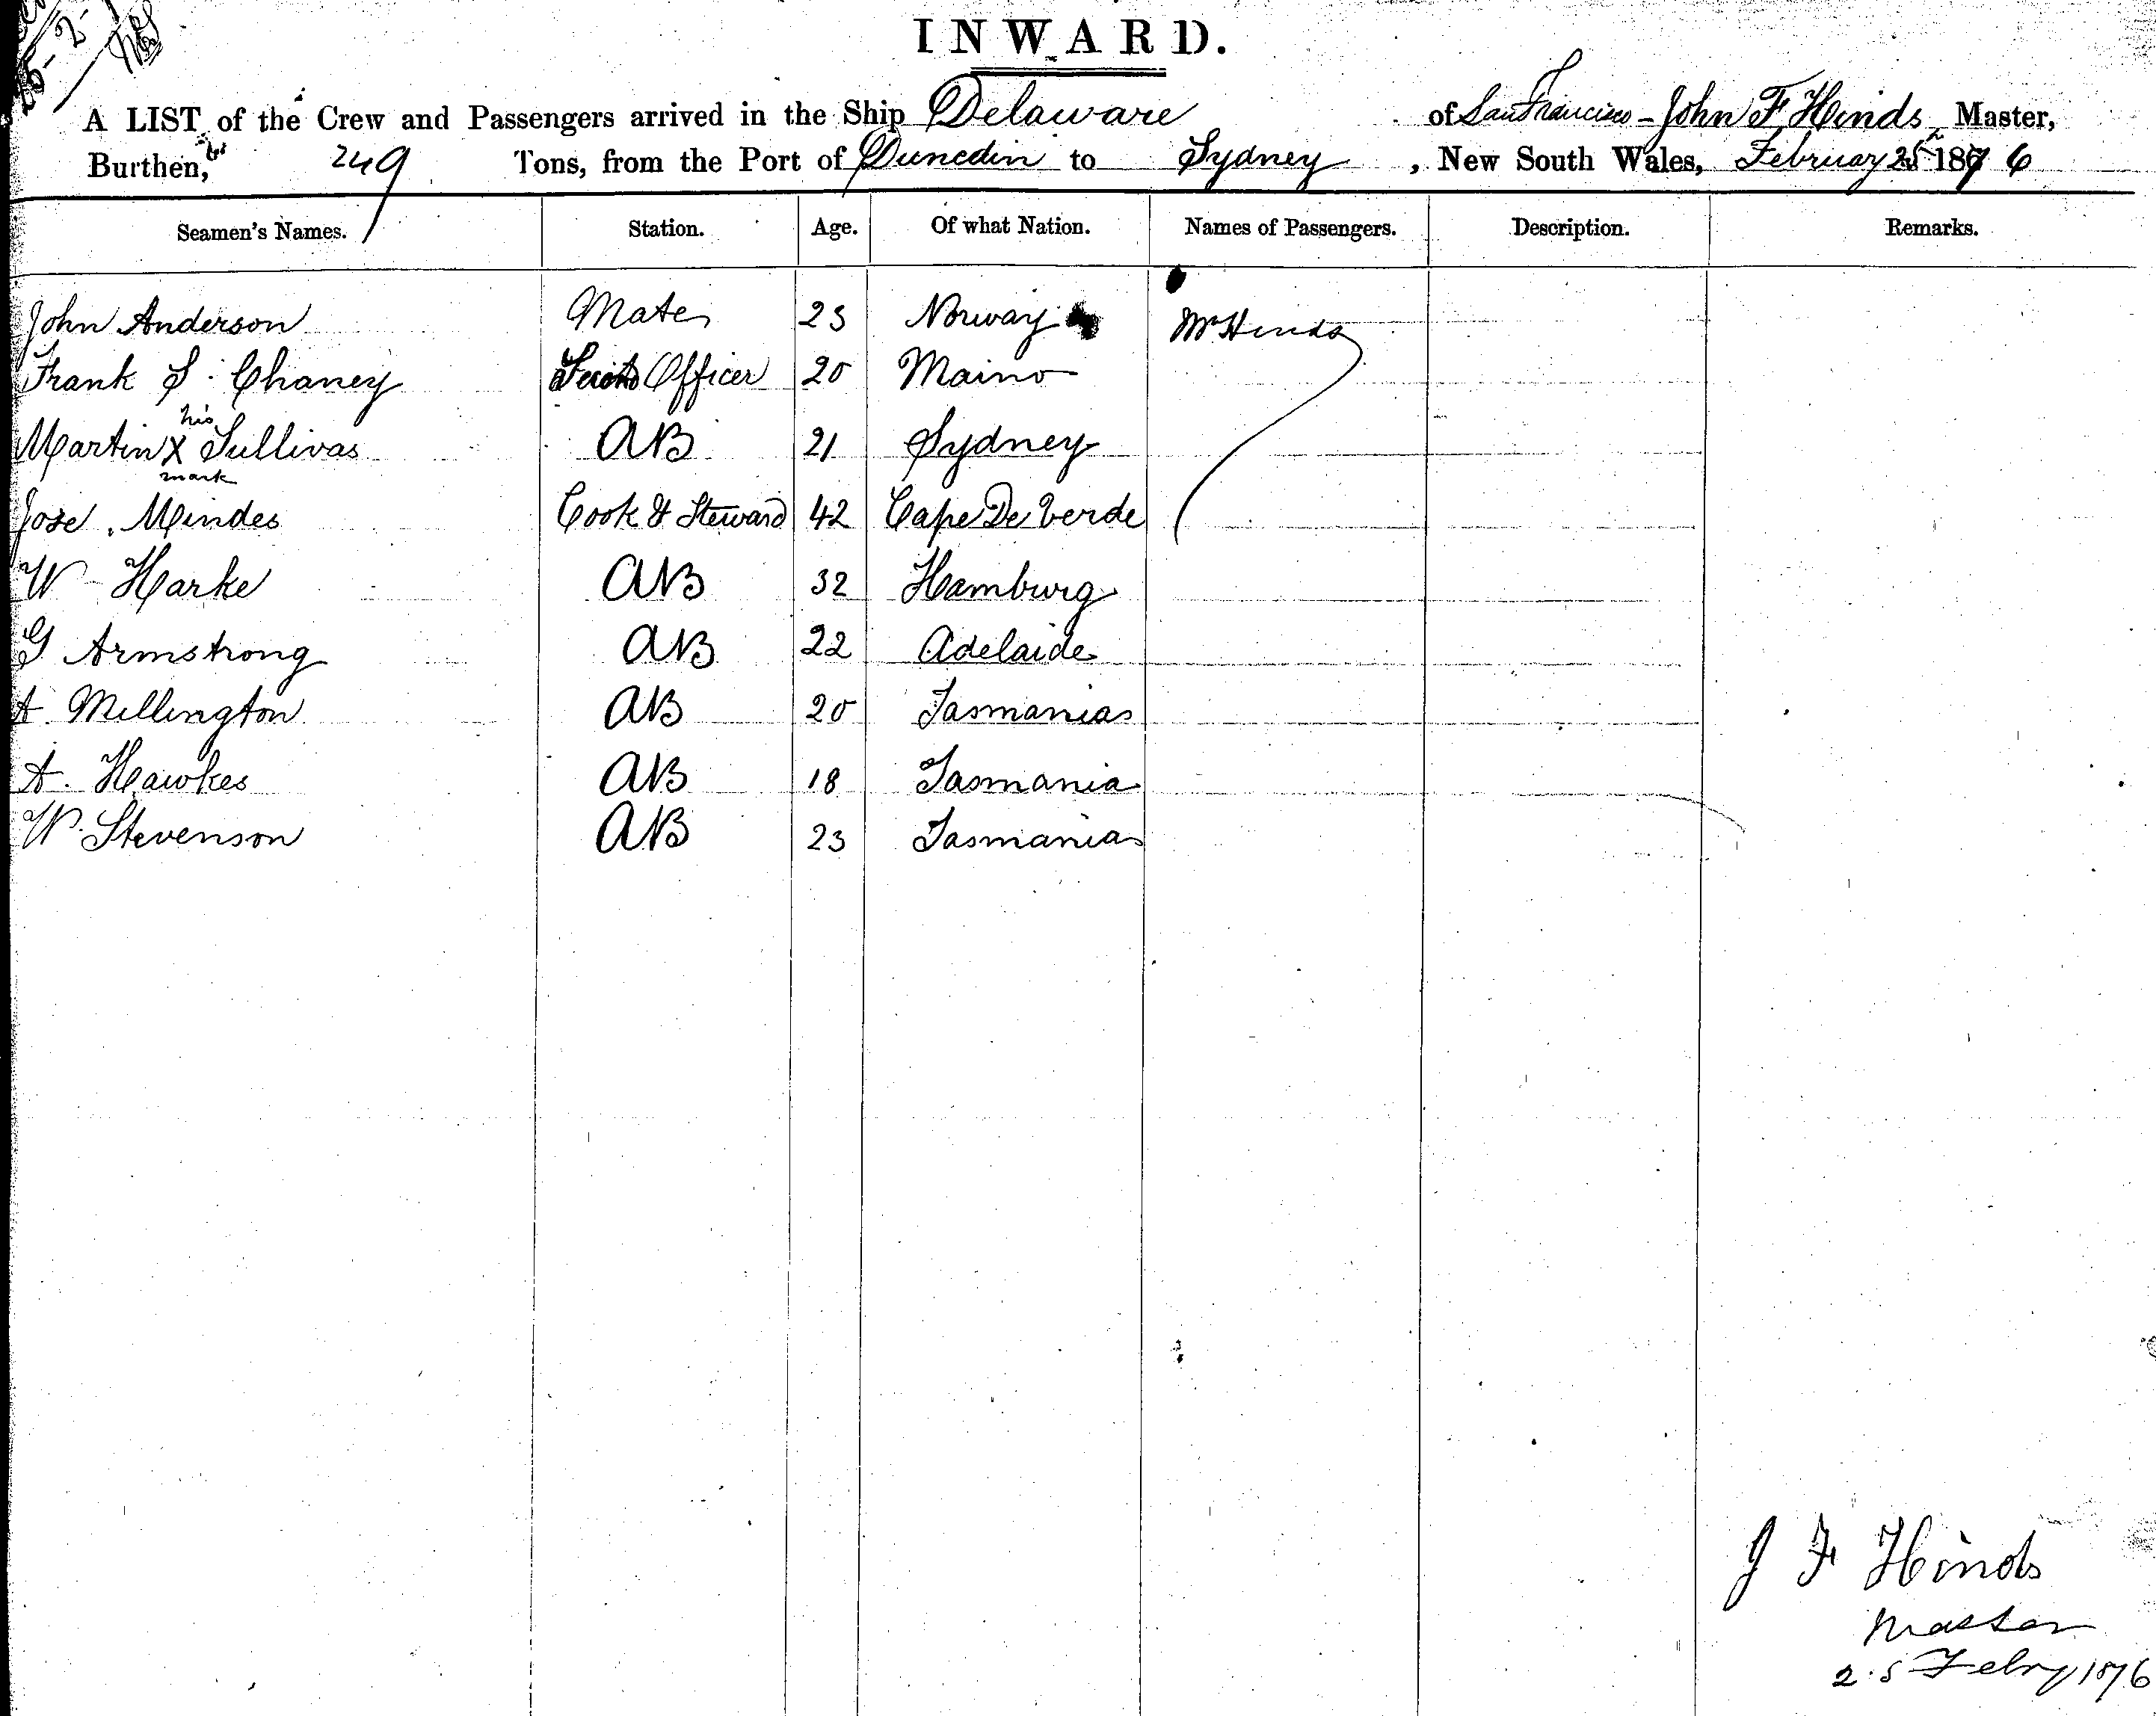 INWARD.
A LIST of the Crew and Passengers arrived in the Ship Delaware of San Francisco - John F Hinds Master,
Burthen, 249 Tons, from the Port of Dunedin to Sydney, New South Wales, February 25th 1876
Seamen's Names. Station. Age. Of what Nation. Names of Passengers. Description. Remarks.
John Anderson Mate 23 Norway Mrs Hinds
Frank S. Chaney Second Officer 20 Maine
his
Martin X Sullivan AB 21 Sydney
mark
Jose Mindes Cook & Steward 42 Cape De Verde
W Harke AB 32 Hamburg
G Armstrong AB 22 Adelaide
A. Millington AB 20 Tasmania
A. Hawkes AB 18 Tasmania
W. Stevenson AB 23 Tasmania
J F Hinds
Master
25 Febry 1876